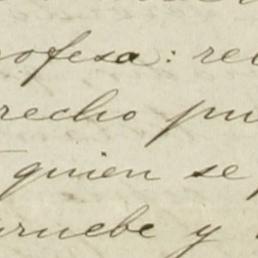 rofesa: re
recho pu
quien se
pruebe y